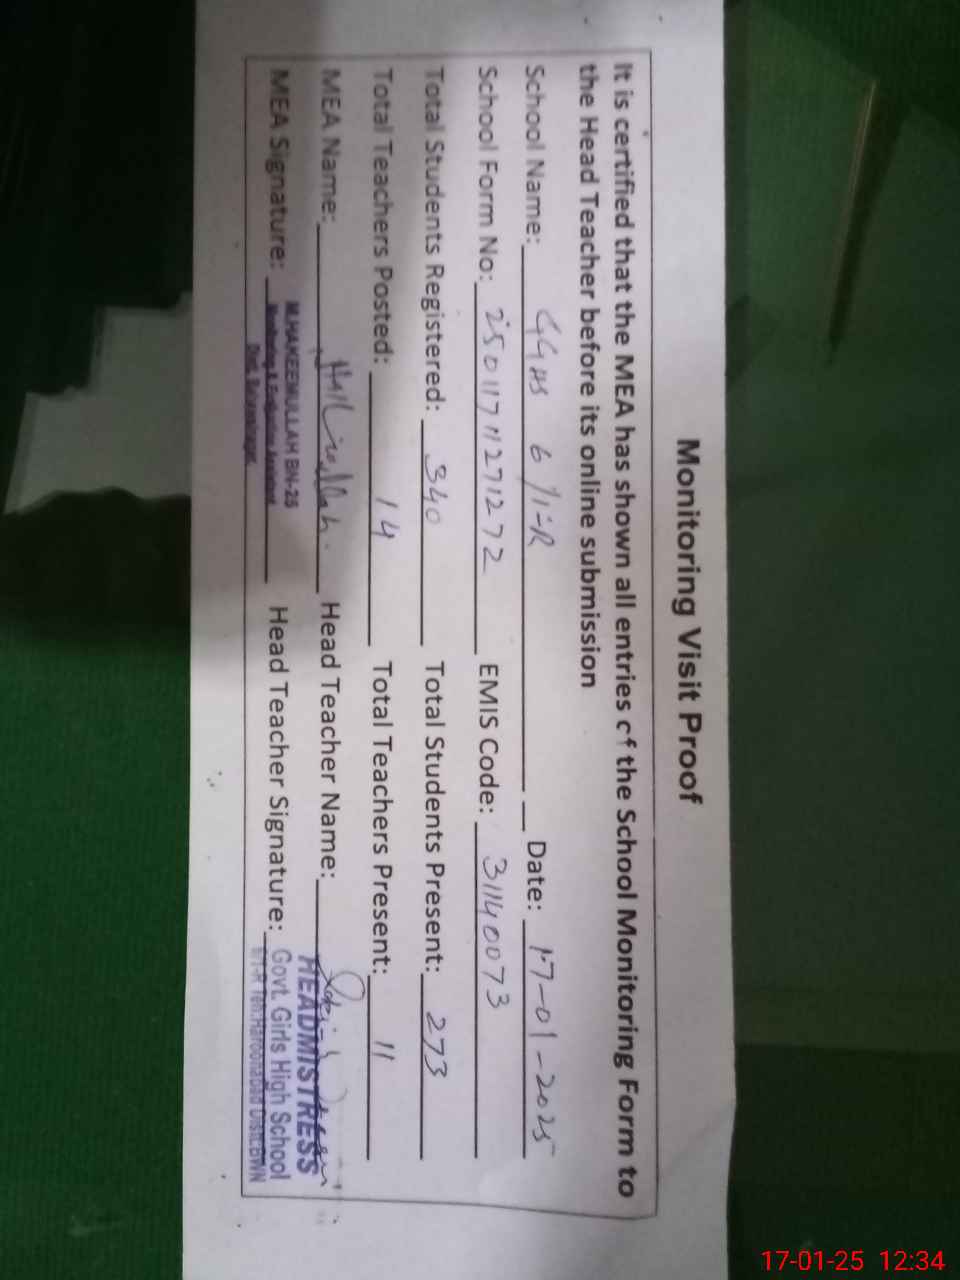 Monitoring Visit Proof
It is certified that the MEA has shown all entries of the School Monitoring Form to
the Head Teacher before its online submission
School Name: GGHS 6/1-R Date: 17-01-2025
School Form No: 25011711271272 EMIS Code: 31140073
Total Students Registered: 340 Total Students Present: 273
Total Teachers Posted: 14 Total Teachers Present: 11
MEA Name: Head Teacher Name:
HEADMISTRESS
MEA Signature: Head Teacher Signature:
M.HAKEEMULLAH BN-25
Monitoring & Evaluation Assistant
Distt. Bahawalnagar.
Govt. Girls High School
6/1-R Teh:Haroonabad Distt.BWN
17-01-25 12:34